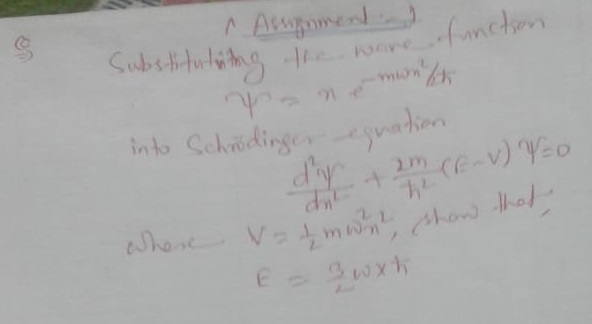 Assignment - 1
Q Substituting the wave function
ψ = x e^{-mωx²/ħ}
into Schrödinger equation
d²ψ/dx² + 2m/ħ² (E-V) ψ=0
where V = ½ mω²x², show that,
E = 3/2 ω×ħ